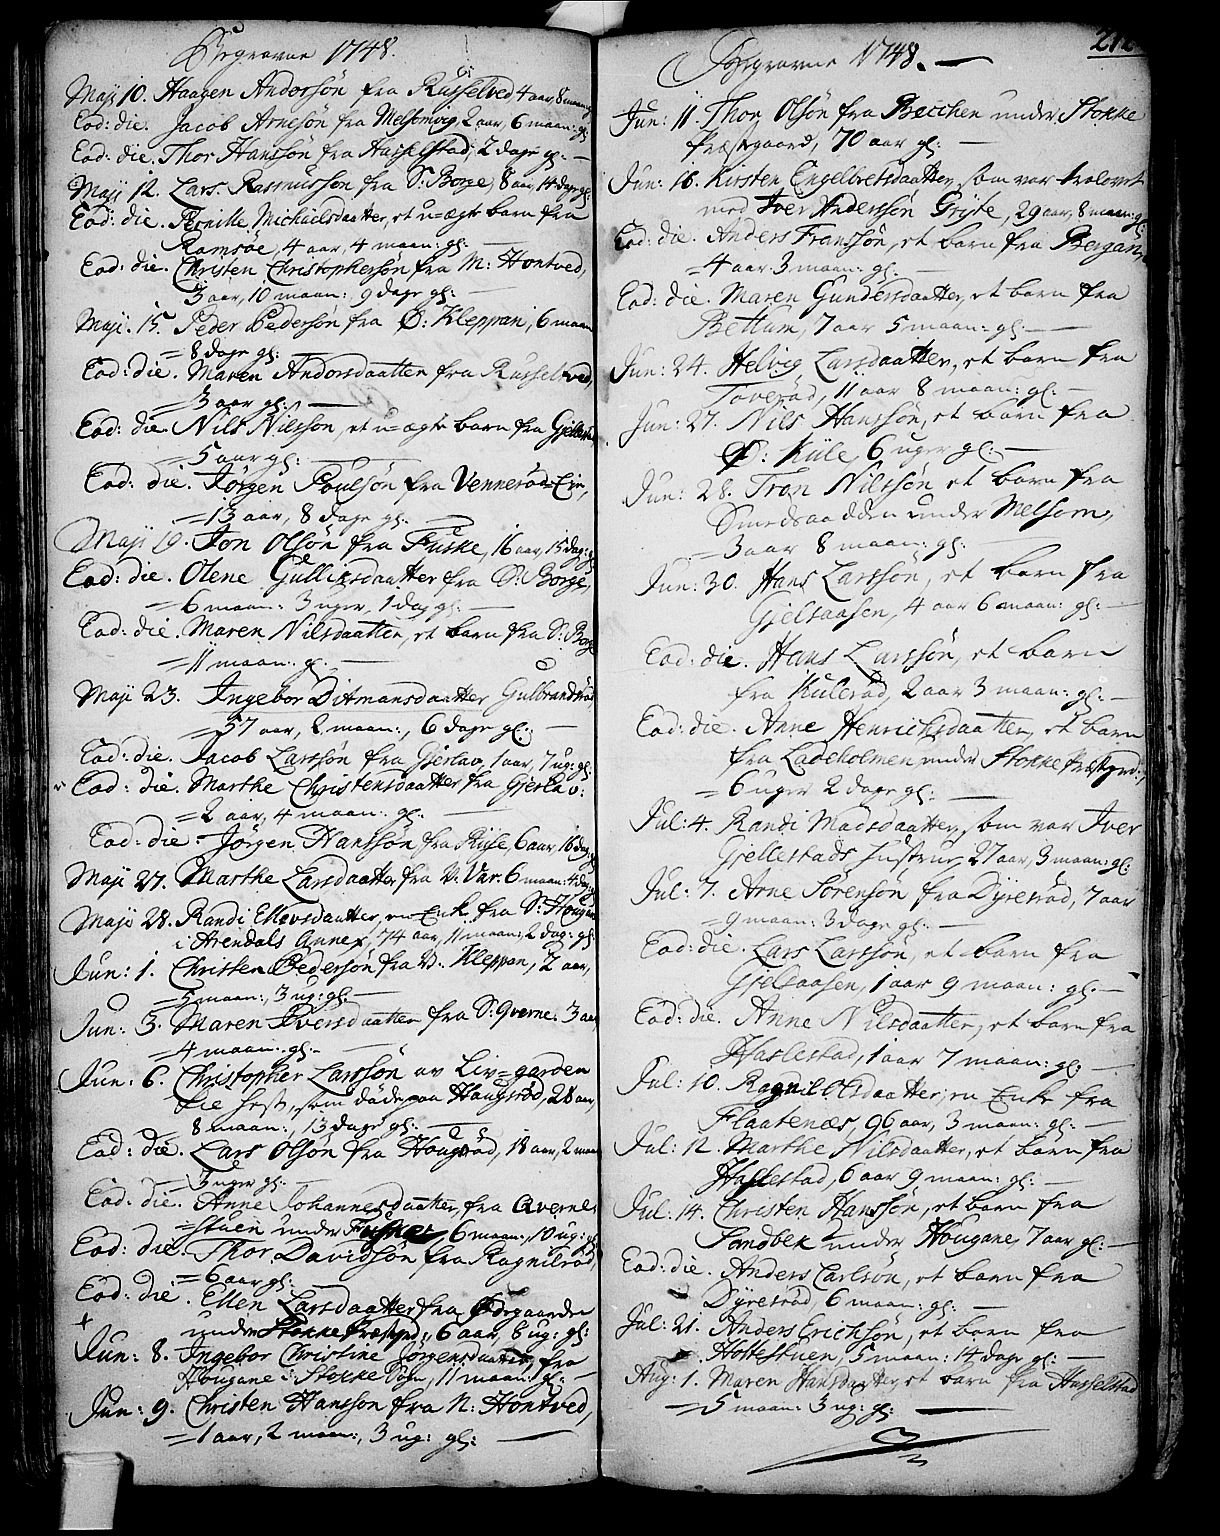 Begravne 1748.
Maji 10. Haagen Andersøn fra Russelved 4 aar, 8 maan: gl:
Eod: die. Jacob Arnesøn fra Melsomvig, 2 aar, 6 maan: gl:
Eod: die. Thor Hanssøn fra Hasselstad, 2 dage gl: —
Maji 12. Lars Rasmussøn fra S: Borge, 8 aar, 14 dage gl:
Eod: die. Pernille Michielsdaatter, et u=ægte barn fra
Ramsøe, 4 aar, 4 maan: gl: —
Eod: die. Christen Christophersøn fra N: Hontved,
3 aar, 10 maan: 9 dage gl: —
Maji. 15. Peder Pedersøn fra Ø: Kleppan, 6 maan:
= 8 dage gl:
Eod: die. Maren Andersdaatter fra Russelved,
= 3 aar gl: —
Eod: die. Nils Nilssøn, et u=ægte barn fra
= 5 aar gl: —
Eod: die. Jørgen Poulsøn fra Vennerød=Eie,
= 13 aar, 8 dage gl: —
Maji 19. Jon Olsøn fra Fuske, 16 aar, 15 dag: gl:
Eod: die. Olene Gullixsdaatter fra S: Borge,
= 6 maan: 3 uger, 1 dag gl: —
Eod: die. Maren Nilsdaatter, et barn fra S: Borge
= 11 maan: gl: —
Maji 23. Ingebor Ditmansdaatter Gulbrandsrød
= 37 aar, 2 maan:, 6 dage gl: —
Eod: die. Jacob Larssøn fra Gjerlav, 1 aar, 7 ug: gl:
Eod: die. Marthe Christensdaatter fra Gjerlav:
= 2 aar, 4 maan: gl: —
Eod: die. Jørgen Hanssøn fra Riise, 6 aar, 16 dag: gl:
Maji 27. Marthe Larsdaatter fra V: Var. 6 maan: 4 dag: gl:
Maji 28. Randi Ellevsdaatter, en Enk. fra S: Hougan
i Arendals Annex, 74 aar, 11 maan: 2 dag: gl:
Jun: 1. Christen Pedersøn fra V: Kleppan, 2 aar,
= 5 maan:, 3 ug: gl: —
Jun: 3. Maren Iversdaatter fra S: Qverne. 3 aar
= 4 maan: gl: —
Jun: 6. Christopher Larssøn av Liv=garden
tie hest, som døde paa Haugsrød, 28 aar,
8 maan:, 13 dage gl: —
Eod: die. Lars Olsøn fra Hougsrød, 18 aar, 2 maan:
= 3 uger gl: —
Eod: die. Anne Johannesdaatter, fra Qverne
= stuen under, 6 maan:, 10 ug: gl:
Eod: die. Thor Davidsøn fra Ragnilrød,
= 6 aar gl: —
Eod: die. Ellen Larsdaatter fra Ødegaarden
+
under Stokke Præstgrd:, 6 aar, 6 ug: gl:
Jun: 8. Ingebor Christine Jørgensdaatter, fra
Hougane i Stokke Sogn, 11 maan: gl: —
Jun: 9. Christen Hanssøn fra N: Hontved,
= 1 aar, 2 maan:, 3 ug: gl: —
Begravne 1748. —
Jun: 11. Thor Olsøn fra Becchen under Stokke
præstgaard, 70 aar gl: —
Jun: 16. Kirsten Engelbretsdaatter, som var trolovet
med Iver Anderssøn Griste, 29 aar, 8 maan: gl:
Eod: die. Anders Franssøn, et barn fra Bergan,
= 4 aar 3 maan: gl: —
Eod: die. Maren Gundersdaatter, et barn fra
Bettum, 7 aar 5 maan: gl: —
Jun: 24. Helvig Larsdaatter, et barn fra
Taverød, 11 aar 8 maan: gl: —
Jun: 27. Nils Hanssøn, et barn fra
Ø: Kiile, 6 uger gl: —
Jun: 28. Tron Nilssøn et barn fra
Smedsaadden under Melsom,
= 3 aar 8 maan: gl: —
Jun: 30. Hans Larssøn, et barn fra
Gjelsaasen, 4 aar 6 maan: gl: —
Eod: die. Hans Larssøn, et barn
fra Kulerød, 2 aar 3 maan: gl: —
Eod: die. Anne Henrichsdaatter, et barn
fra Ladeholmen under Stokke præstgrd:,
= 6 uger 2 dage gl: —
Jul: 4. Randi Madsdaatter, som var Iver
Gjellestads hustrue, 27 aar, 3 maan: gl:
Jul: 7. Arne Sørensøn fra Dyresrød, 7 aar
= 9 maan: 3 dage gl: —
Eod: die. Lars Larssøn, et barn fra
Gjelsaasen, 1 aar 9 maan: gl: —
Eod: die. Anne Nilsdaatter, et barn fra
Haslestad, 1 aar 7 maan: gl: —
Jul: 10. Ragnil Olsdaatter, en Enke fra
Flaatenæs, 96 aar, 3 maan: gl: —
Jul: 12. Marthe Nilsdaatter, et barn fra
Haslestad, 6 aar 9 maan: gl: —
Jul: 14. Christen Hanssøn, et barn fra
Sandbek under Hougane 7 aar gl: —
Eod: die. Anders Carlsøn, et barn fra
Dyresrød, 6 maan: gl: —
Jul: 21. Anders Erichsøn, et barn fra
Holtestuen, 5 maan: 14 dage gl: —
Aug: 1. Maren Hansdaatter, et barn fra Hasselstad
= 5 maan: 3 ug: gl: —